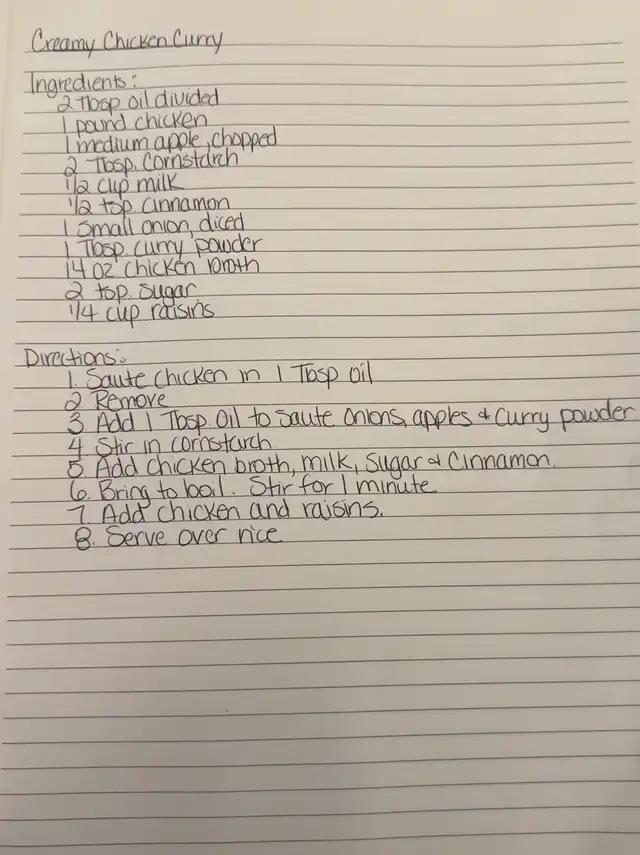 Creamy Chicken Curry
Ingredients:
2 Tbsp oil divided
1 pound chicken
1 medium apple, chopped
2 Tbsp. cornstarch
1/2 cup milk
1/2 tsp cinnamon
1 small onion, diced
1 Tbsp. curry powder
14 oz chicken broth
2 tsp. sugar
1/4 cup raisins
Directions:
1. Saute chicken in 1 Tbsp oil
2 Remove
3 Add 1 Tbsp oil to saute onions, apples & curry powder
4 Stir in cornstarch
5 Add chicken broth, milk, sugar & cinnamon.
6. Bring to boil. Stir for 1 minute
7. Add chicken and raisins.
8. Serve over rice